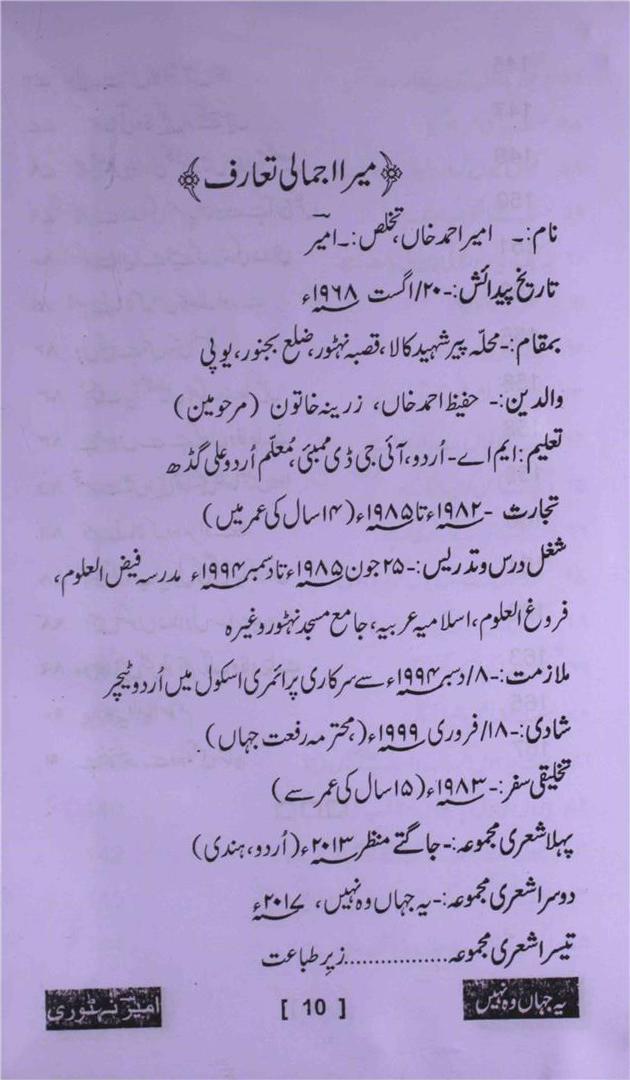 ﴿میرا اجمالی تعارف﴾
نام:۔ امیر احمد خاں، تخلص:۔امیرؔ
تاریخ پیدائش:-۲۰/اگست ۱۹۶۸ء
بمقام:-محلّہ پیر شہید کالا، قصبہ نہٹور، ضلع بجنور، یو پی
والدین:- حفیظ احمد خاں، زرینہ خاتون (مرحومین)
تعلیم: ایم اے-اُردو، آئی جی ڈی ممبئی، مُعلّم اُردو علی گڈھ
تجارت -۱۹۸۲ء تا ۱۹۸۵ء (۱۴ سال کی عمر میں)
شغل درس و تدریس:-۲۵ جون ۱۹۸۵ء تا دسمبر ۱۹۹۴ء مدرسہ فیض العلوم،
فروغ العلوم، اسلامیہ عربیہ، جامع مسجد نہٹور وغیرہ
ملازمت:-۸/دسبر ۱۹۹۴ء سے سرکاری پرائمری اسکول میں اُردو ٹیچر
شادی:-۱۸/فروری ۱۹۹۹ء (محترمہ رفعت جہاں)
تخلیقی سفر:-۱۹۸۳ء (۱۵ سال کی عمر سے)
پہلا شعری مجموعہ:-جاگتے منظر ۲۰۱۳ء (اُردو، ہندی)
دوسرا شعری مجموعہ:-یہ جہاں وہ نہیں، ۲۰۱۷ء
تیسرا شعری مجموعہ..................زیرِ طباعت
یہ جہاں وہ نہیں [ 10 ] امیرؔ نہٹوری